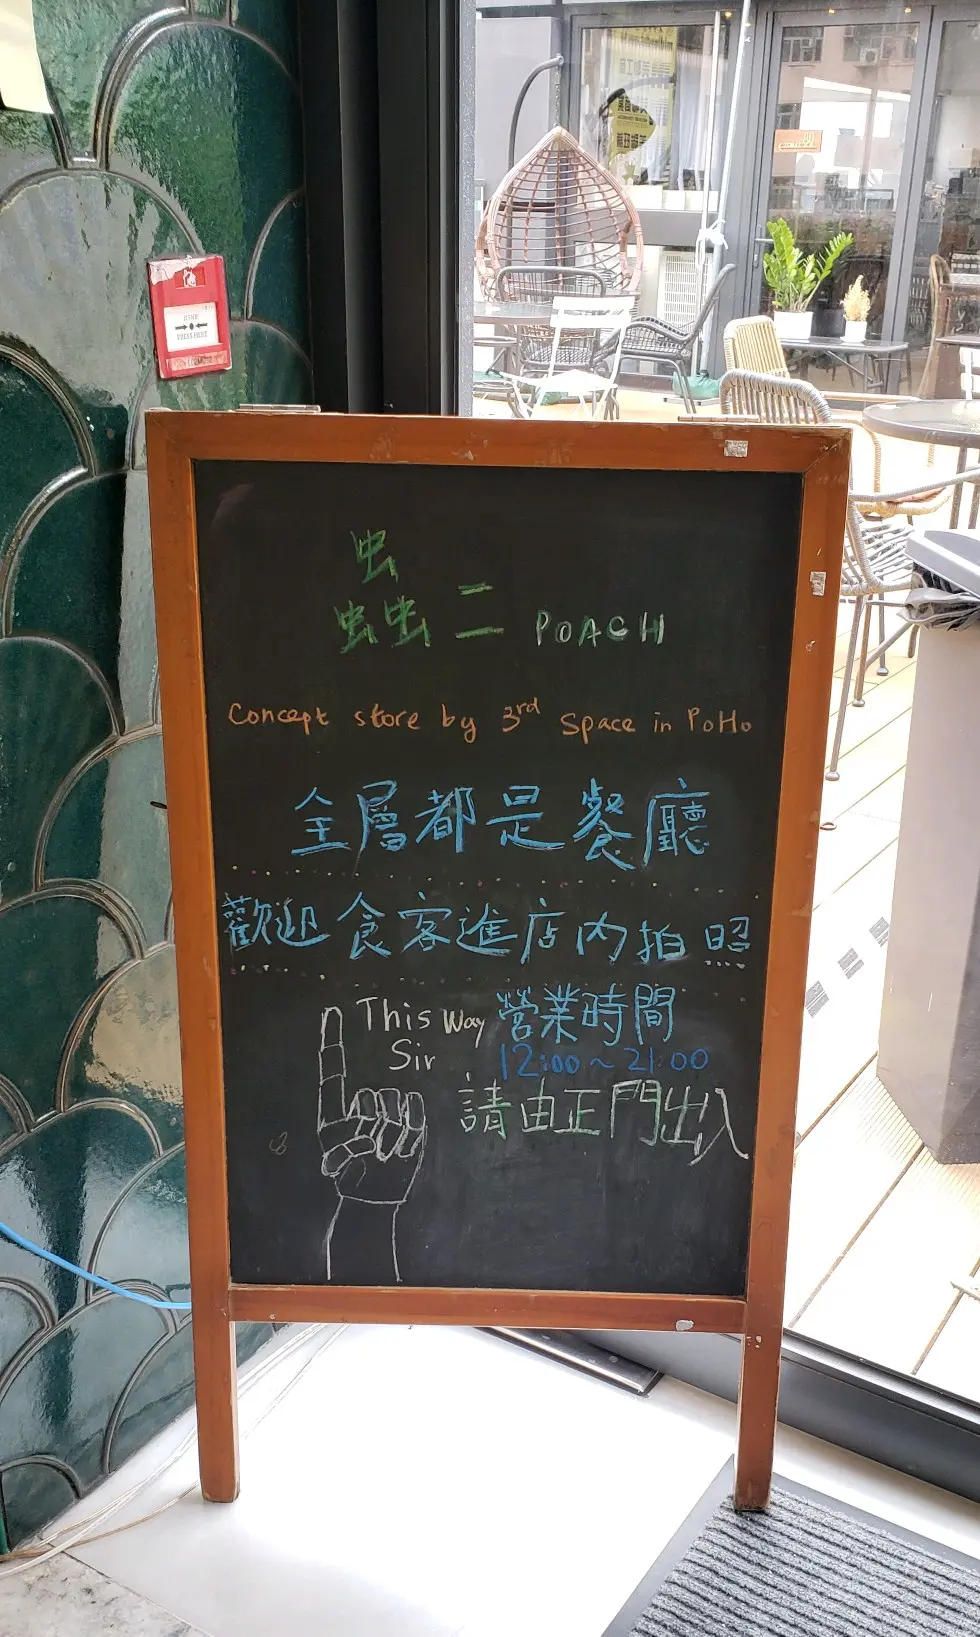 PRESS HERE
蟲二 POACH
Concept store by 3rd Space in PoHo
全層都是餐廳
歡迎食客進店內拍照
This Way
Sir
營業時間
12:00~21:00
請由正門出入